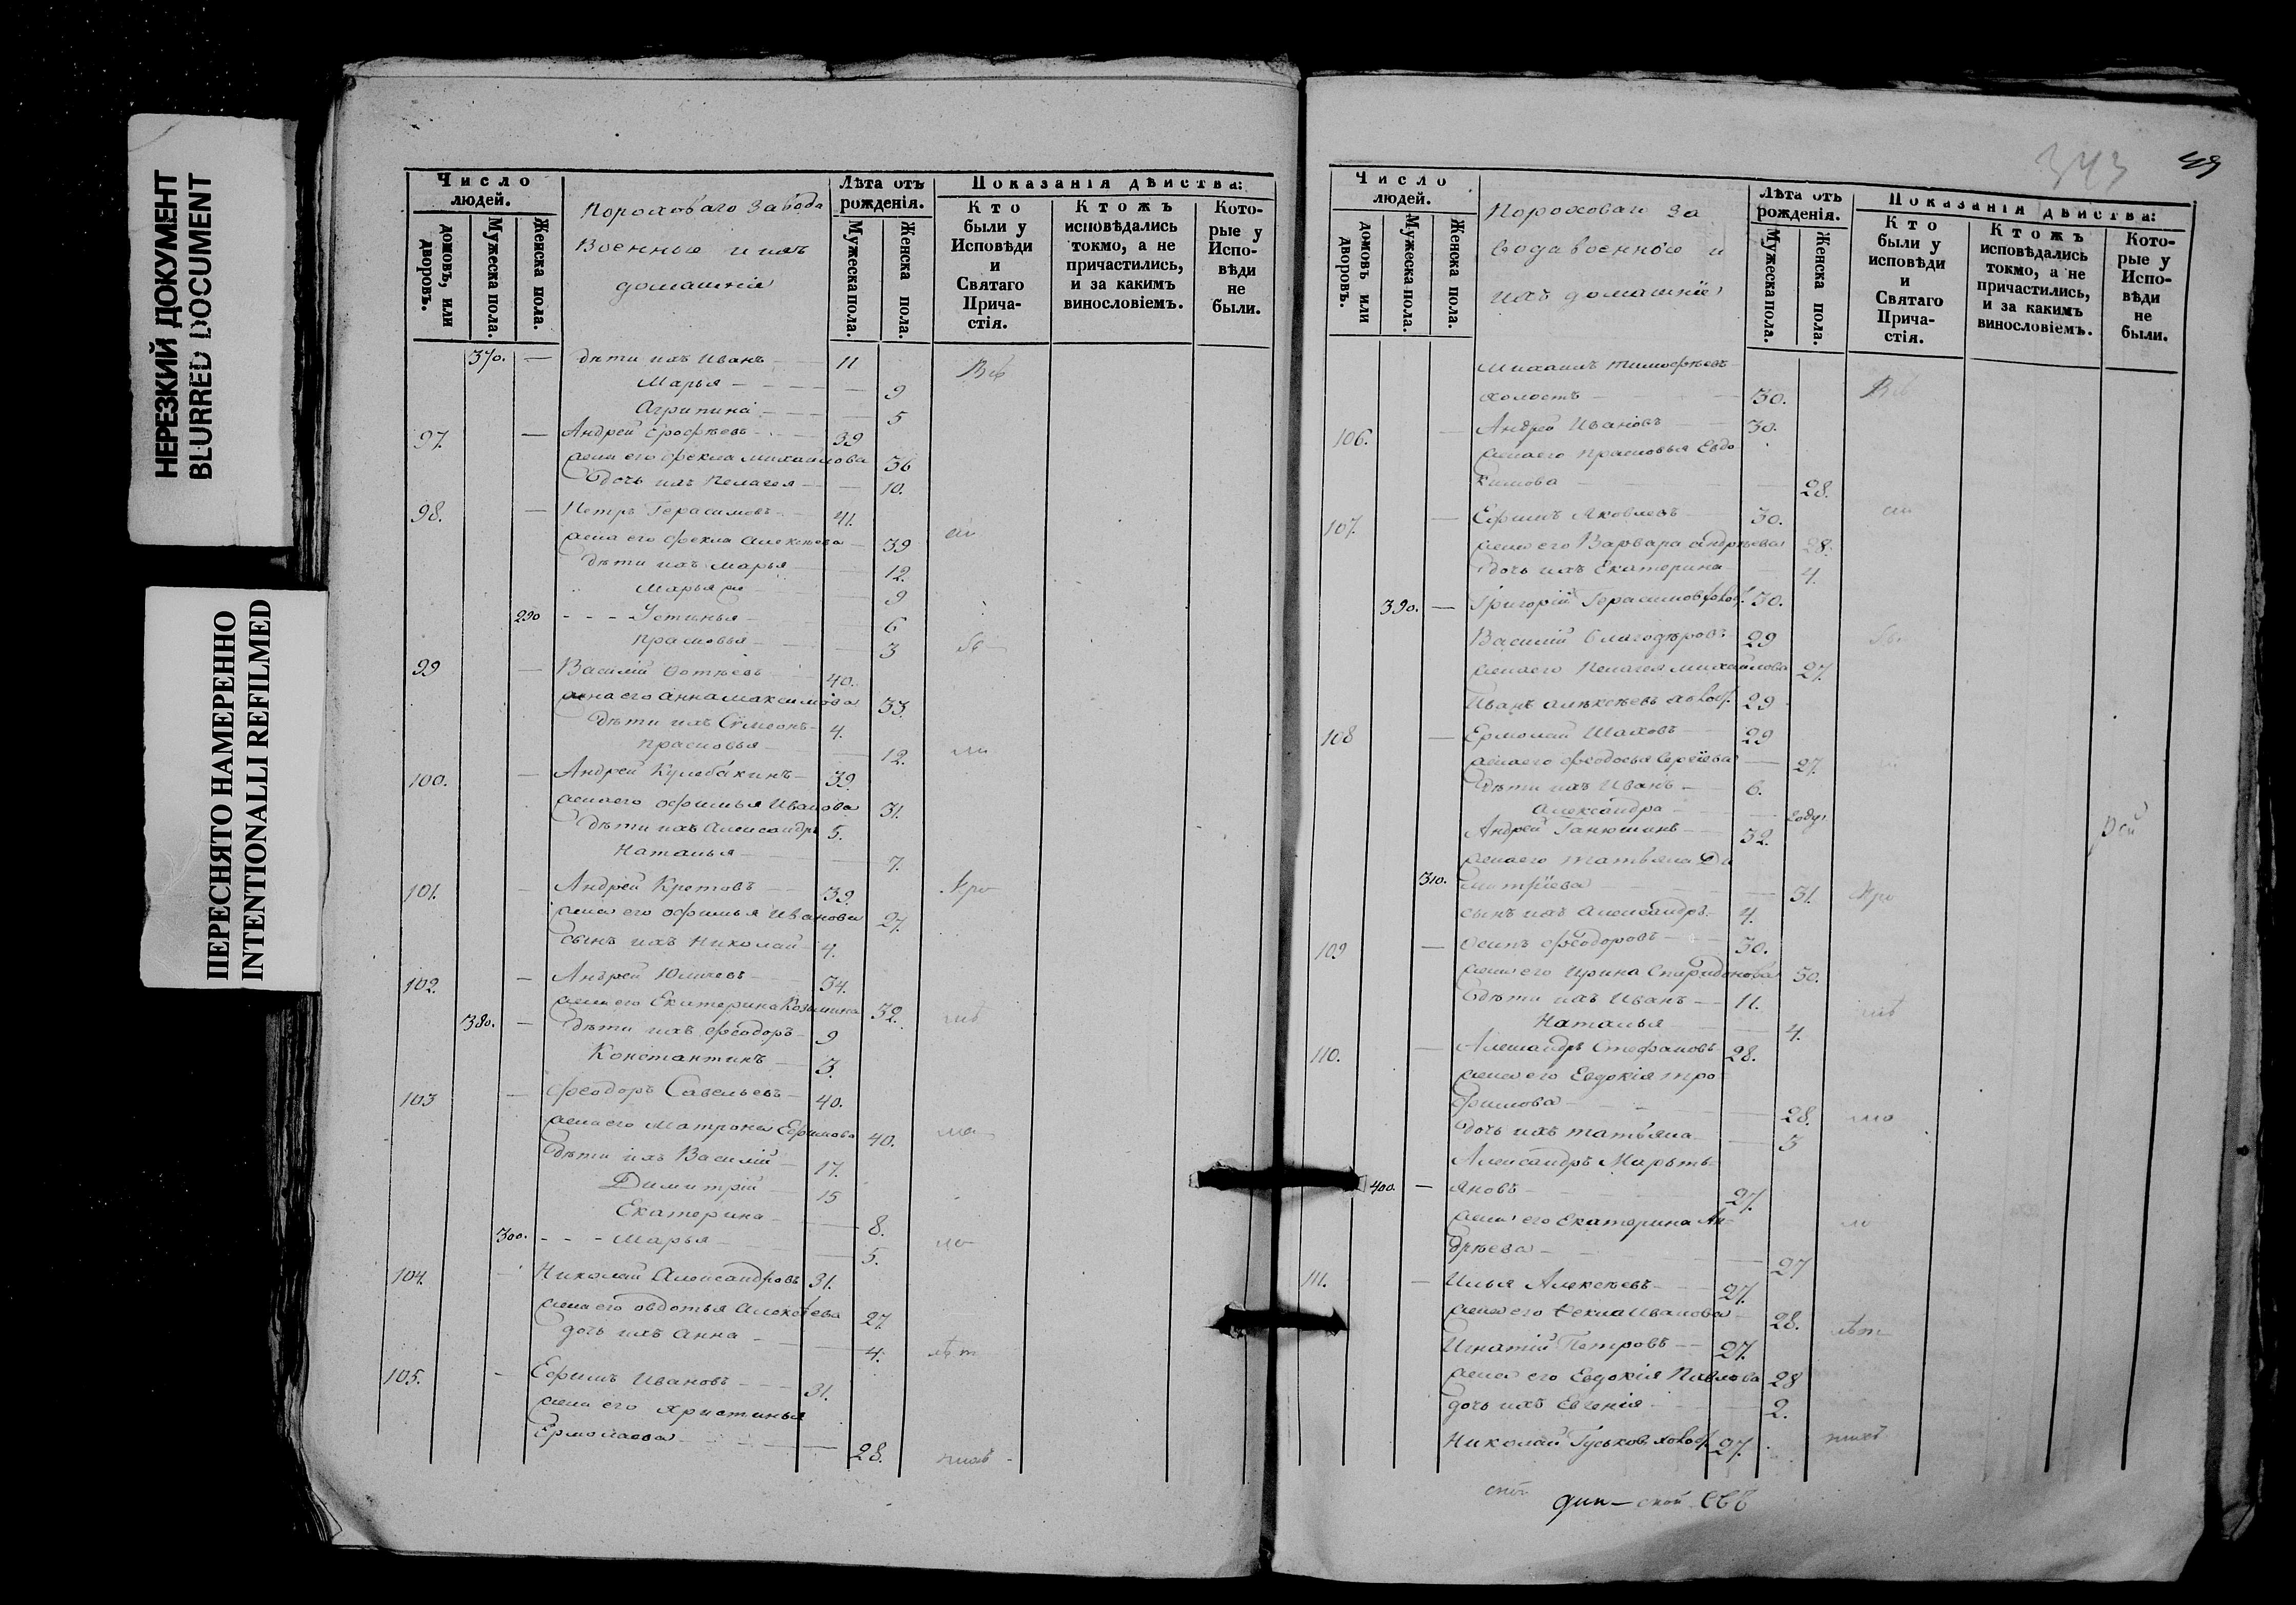 НЕРЕЗКИЙ ДОКУМЕНТ
BLURRED DOCUMENT
ПЕРЕСНЯТО НАМЕРЕННО
INTENTIONALLI REFILMED
Число людей.
домовъ, или дворовъ.
Мужеска пола.
Женска пола.
Пороховаго завода
Военные и ихъ
домашніе
Лѣта отъ рожденія.
Мужеска пола.
Женска пола.
Показанія дѣйства:
Кто были у Исповѣди и Святаго Прича-стія.
Ктожъ исповѣдались токмо, а не причастились, и за какимъ винословіемъ.
Кото-рые у Испо-вѣди не были.
370. — дѣти ихъ Иванъ 11 Всѣ
Марья 9
Агрипина 5
97. — Андрей Ерофѣевъ 39
жена его Фекла Михайлова 36
дочь ихъ Пелагея 10.
98. — Петръ Герасимовъ 41.
жена его Фекла Алексѣева 39
дѣти ихъ Марья 12.
Марья 9
290 - - - Устинья 6
Прасковья 3
99 — Василій 40.
жена его Анна Максимова 33.
дѣти ихъ Сѵмеонъ 4.
Прасковья 12.
100. — Андрей Кулебакинъ 39.
жена его Офимья Иванова 31.
дѣти ихъ Александръ 5.
Наталья 7.
101. — Андрей Кретовъ 39.
жена его Офимья Иванова 27.
сынъ ихъ Николай 4.
102. — Андрей 34.
жена его Екатерина Козьмина 32.
380. — дѣти ихъ Феодоръ 9
Константинъ 3.
103 — Феодоръ Савельевъ 40.
жена его Матрона Ефимова 40.
дѣти ихъ Василій 17.
Димитрій 15
Екатерина 8.
300. - - - Марья 5.
104. Николай Александровъ 31.
жена его Овдотья Алексѣева 27.
дочь ихъ Анна 4.
105. - Ефимъ Ивановъ 31.
жена его Христинья
Ермолаева 28.
343 49
Число людей.
домовъ или дворовъ.
Мужеска пола.
Женска пола.
Пороховаго за
вода военного и
ихъ домашніе
Лѣта отъ рожденія.
Мужеска пола.
Женска пола.
Показанія дѣйства:
Кто были у исповѣди и Святаго Прича-стія.
Ктожъ исповѣдались токмо, а не причастились, и за какимъ винословіемъ.
Кото-рые у Испо-вѣди не были.
Михаилъ Тимофѣевъ
холостъ 30. Всѣ
106. — Андрей Ивановъ 30.
жена его Прасковья Евдо
кимова 28.
107. — Ефимъ Яковлевъ 30.
жена его Варвара Андрѣева 28.
дочь ихъ Екатерина 4.
390. — Григорій Герасимовъ холост. 30.
Василій 29
жена его Пелагея Михайлова 27.
Иванъ Алексѣевъ холост. 29
108 — Ермолай Шаховъ 29
жена его Феодосья Сергѣева 27.
дѣти ихъ Иванъ 6.
Александра году
Андрей Ганюшинъ 32.
жена его Татьяна Ди
310. митріева 31.
сынъ ихъ Александръ 4.
109 — Осипъ Феодоровъ 30.
жена его Ирина Спиридонова 30.
дѣти ихъ Иванъ 11.
Наталья 4.
110. — Александръ Стефановъ 28.
жена его Евдокія Тро
фимова 28.
дочь ихъ Татьяна 3
Александръ Марть
400. — яновъ 27.
жена его Екатерина Ан
дрѣева 27
111. — Илья Алексѣевъ 27.
жена его Фекла Иванова 28.
Игнатій Петровъ 27.
жена его Евдокія Павлова 28
дочь ихъ Евгенія 2.
Николай Гуськов холост. 27.